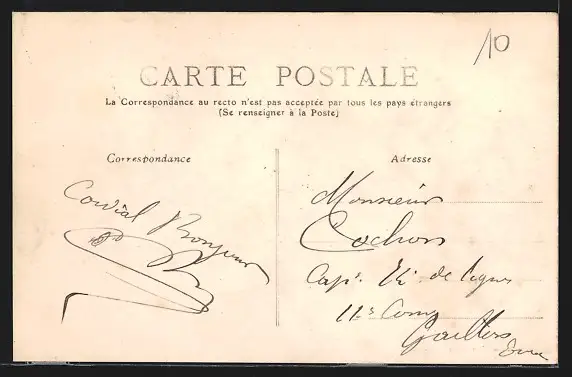 10
CARTE POSTALE
La Correspondance au recto n'est pas acceptée par tous les pays étrangers
(Se renseigner à la Poste)
Correspondance
Adresse
Cordial Bonjour
Monsieur
Cochon
Capl. de
11e Comp
Gaillon
Eure